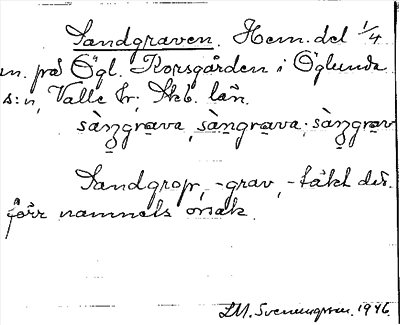 Sandgraven. Hem. del 1/4
m. på Ögl. Korsgården i Öglunda
s:n, Valle hr, Skb. län.
sàngrava, sàngrava, sàngrav
Sandgrop, -grav, -täkt där.
förr namnets orsak.
L.M. Svenungsson. 1946.